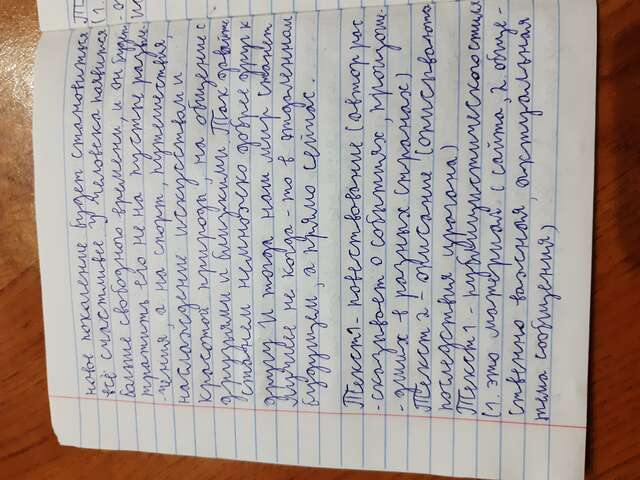 новое поколение будет становиться
всё счастливее. У человека появится
больше свободного времени, и он будет
тратить его не на пустые развле-
чения, а на спорт, путешествия,
наслаждение искусством и
красотой природы, на общение с
друзьями и близкими. Так давайте
станем немножко добрее друг к
другу. И тогда наш мир станет
лучше не когда-то в отдаленном
будущем, а прямо сейчас.
Текст 1- повествование (автор рас
-сказывает о событиях, происходи-
-дших в разных странах)
Текст 2 - описание (описываются
последствия урагана)
Текст 1 - публицистического стиля
(1. это материал с сайта, 2 обще-
ственно важная, актуальная
тема сообщения)